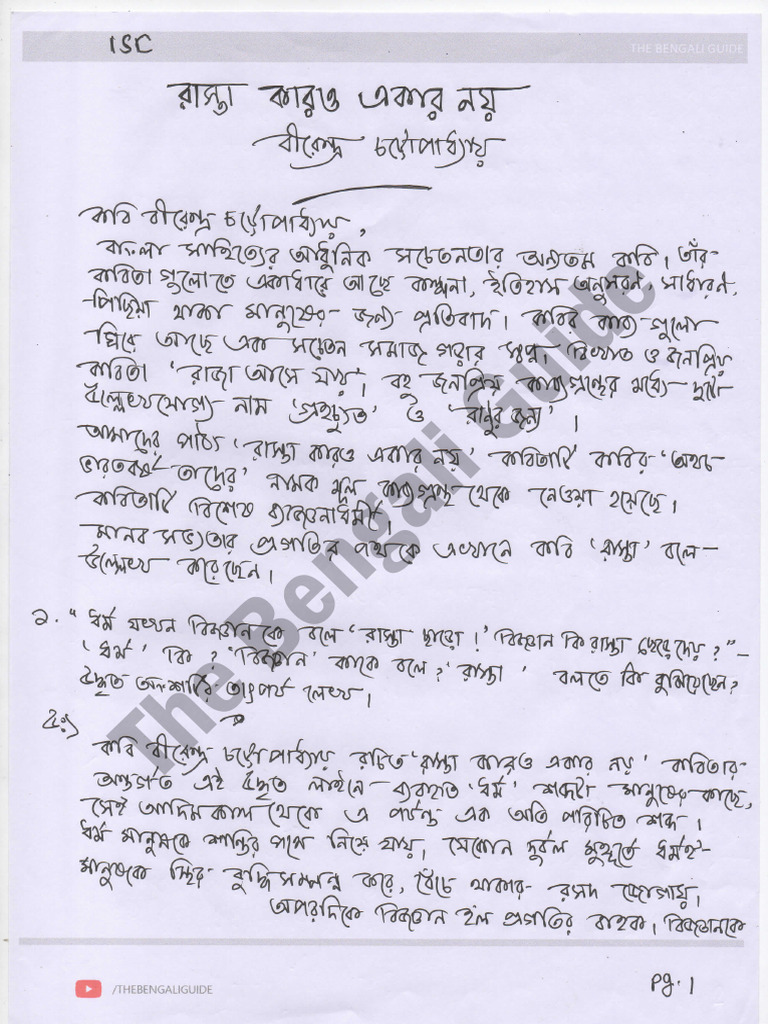 ISC
THE BENGALI GUIDE
রাস্তা কারও একার নয়
বীরেন্দ্র চট্টোপাধ্যায়
কবি বীরেন্দ্র চট্টোপাধ্যায়,
বাংলা সাহিত্যের আধুনিক সচেতনতার অন্যতম কবি। তাঁর
কবিতা গুলোতে একাধারে আছে কল্পনা, ইতিহাস অনুসরণ, সাধারণ,
পিছিয়া থাকা মানুষের জন্য প্রতিবাদ। কবির কাব্য গুলো
ঘিরে আছে এক সচেতন সমাজ গড়ার স্বপ্ন। বিখ্যাত ও জনপ্রিয়
কবিতা 'রাজা আসে যায়'। বহু জনপ্রিয় কাব্যগ্রন্থের মধ্যে দুটো
উল্লেখযোগ্য নাম 'গ্রহচ্যুত' ও 'রানুর জন্য'।
আমাদের পাঠ্য 'রাস্তা কারও একার নয়' কবিতাটি কবির 'অথচ
ভারতবর্ষ তাদের' নামক মূল কাব্যগ্রন্থ থেকে নেওয়া হয়েছে।
কবিতাটি বিশেষ ব্যঞ্জনাধর্মী,
মানব সভ্যতার প্রগতির পথকে এখানে কবি 'রাস্তা' বলে
উল্লেখ করেছেন।
১. "ধর্ম যখন বিজ্ঞানকে বলে 'রাস্তা ছাড়ো!' বিজ্ঞান কি রাস্তা ছেড়ে দেয়?"-
'ধর্ম' কি? 'বিজ্ঞান' কাকে বলে? 'রাস্তা' বলতে কি বুঝিয়েছেন?
উদ্ধৃত অংশটির তাৎপর্য লেখ।
উঃ)
কবি বীরেন্দ্র চট্টোপাধ্যায় রচিত 'রাস্তা কারও একার নয়' কবিতার
অন্তর্গত এই উদ্ধৃত লাইনে ব্যবহৃত 'ধর্ম' শব্দটা মানুষের কাছে,
সেই আদিমকাল থেকে এ পর্যন্ত এক অতি পরিচিত শব্দ।
ধর্ম মানুষকে শান্তির পথে নিয়ে যায়। যেকোন দুর্বল মুহূর্তে ধর্মই
মানুষকে স্থির বুদ্ধিসম্পন্ন করে, বেঁচে থাকার রসদ জোগায়।
অপরদিকে বিজ্ঞান হল প্রগতির বাহক। বিজ্ঞানকে
/THEBENGALIGUIDE
pg. 1
The Bengali Guide